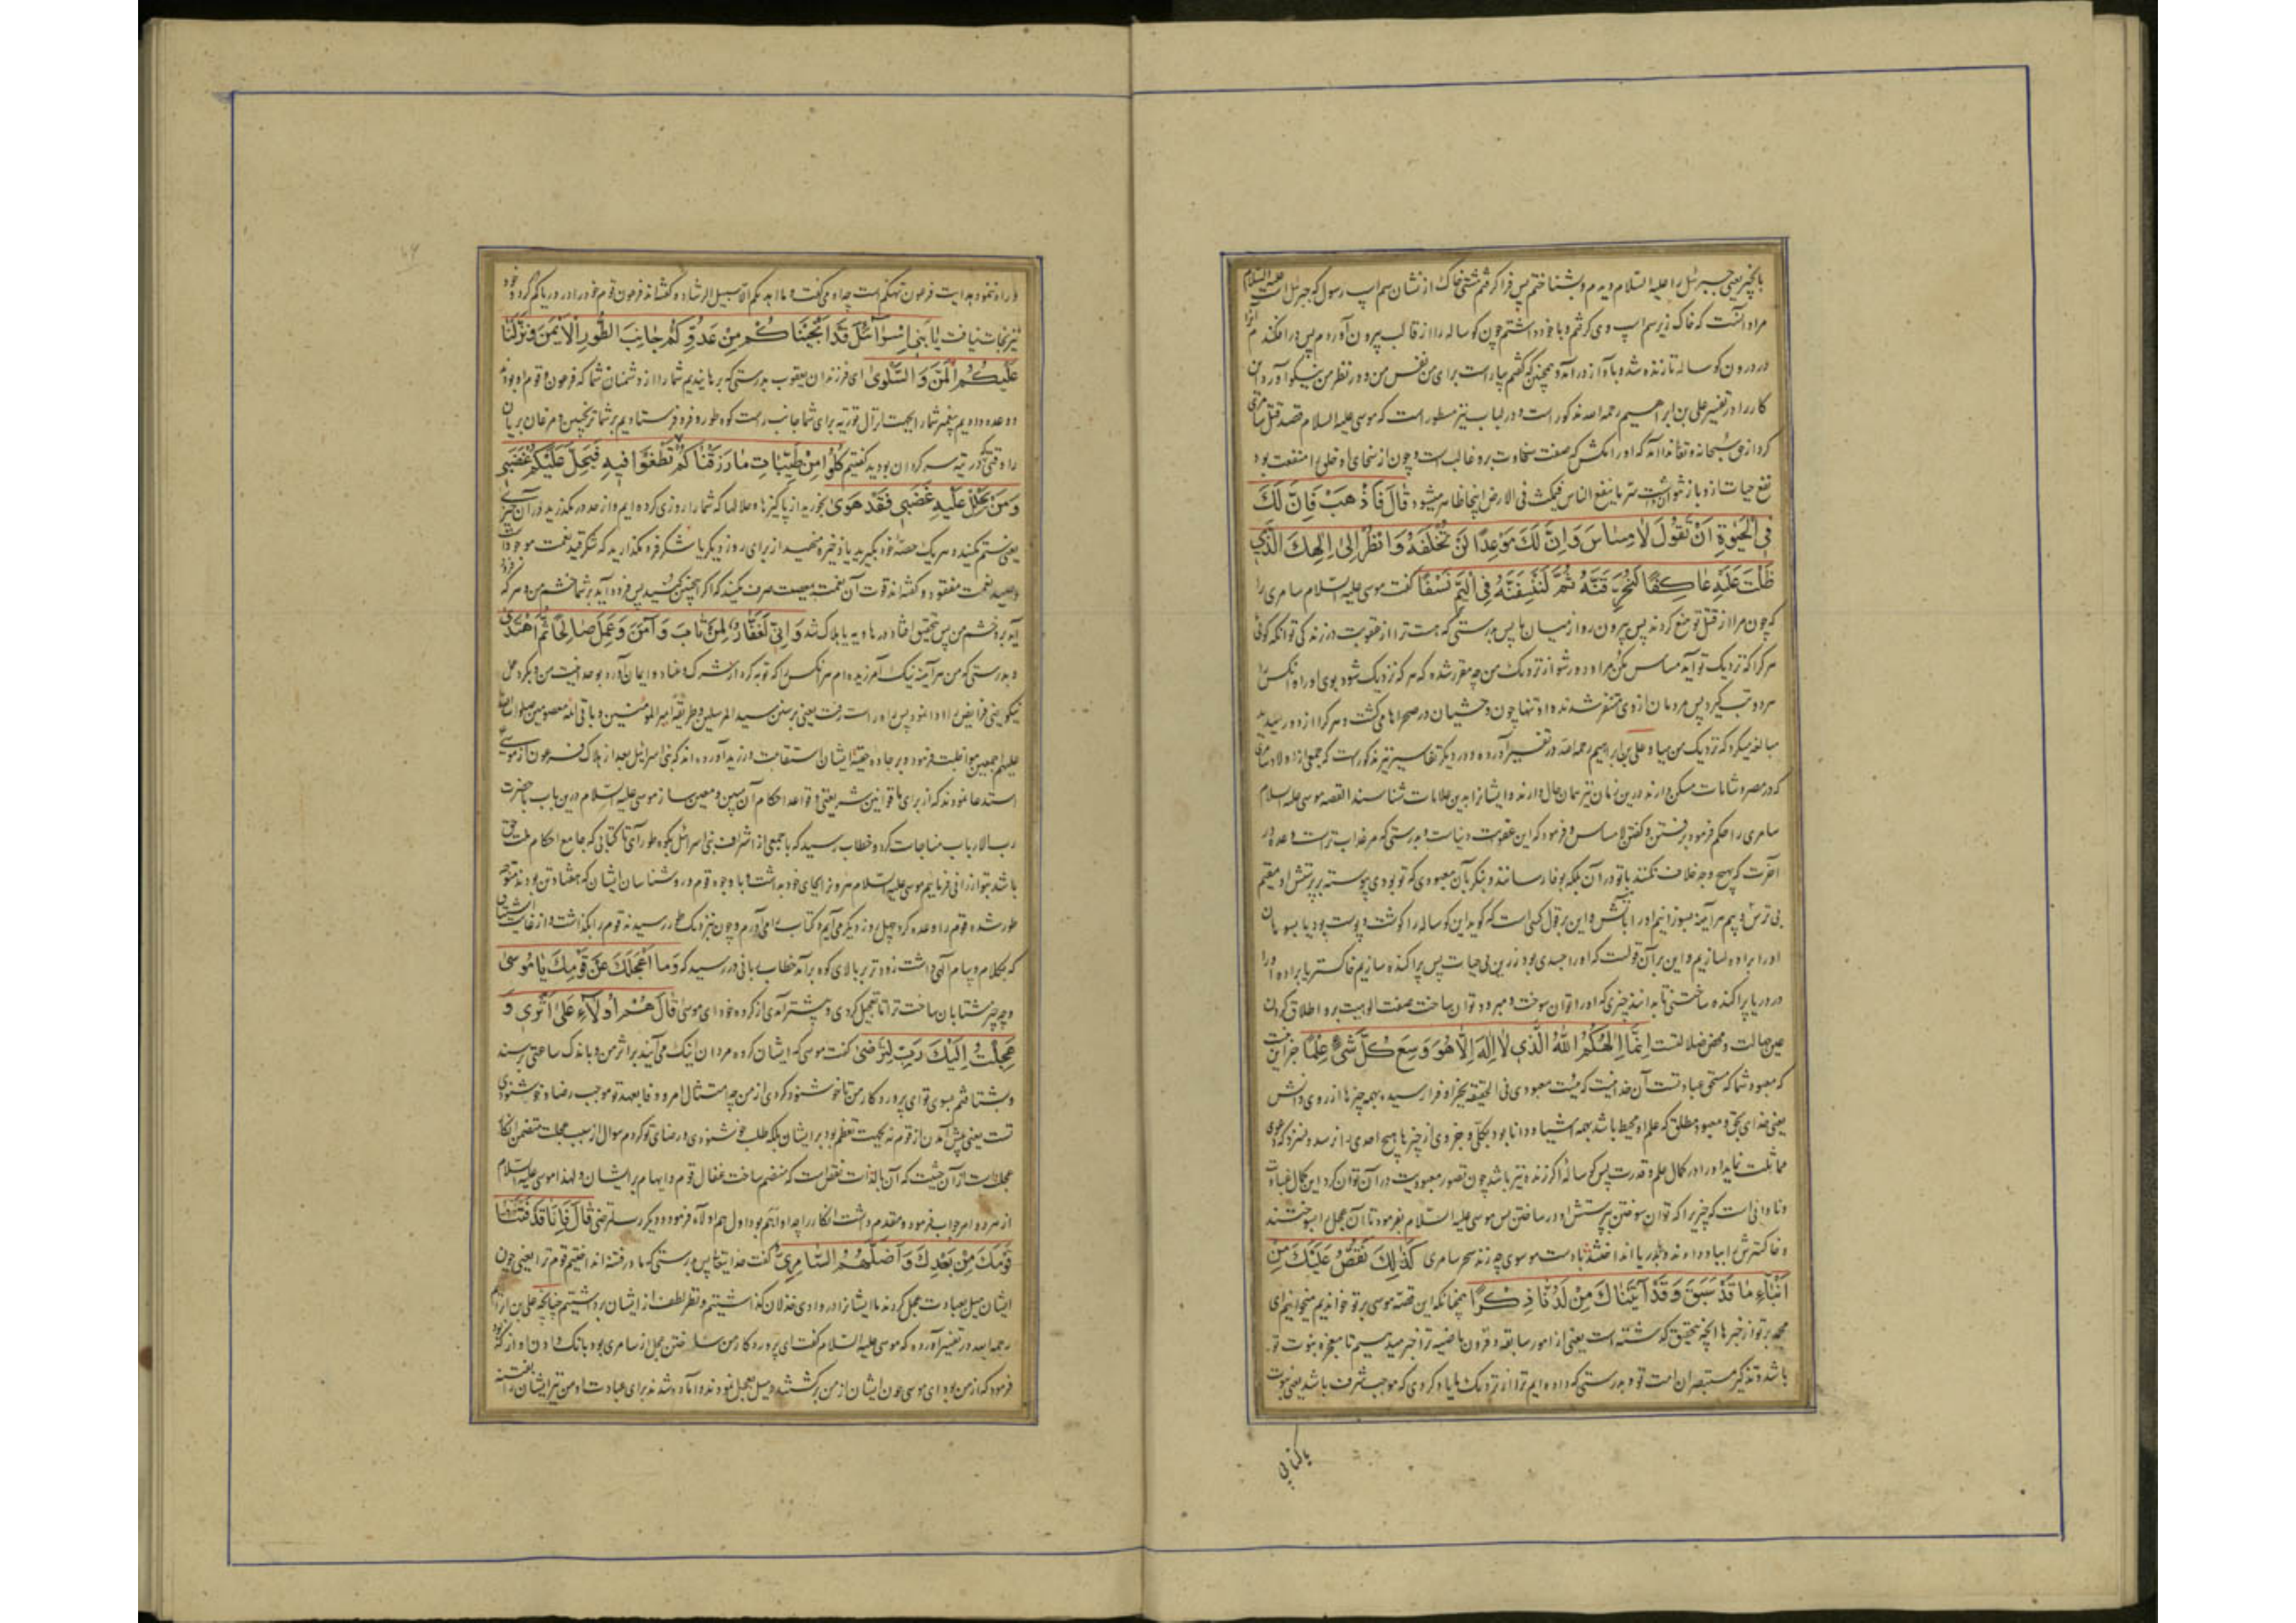 مراد آنست که خاک زیر سم اسپ وی گرفتم و با خود داشتم چون کوساله را از قالب بیرون آوردم پس در افکندم آنرا
در درون کوساله تا زنده شد و بآواز درآمد و همچنین
کار را در تفسیر علی بن ابراهیم رحمه الله مذکور است و در لباب نیز مسطور است که موسی علیه السلام قصد قتل سامری
کرد از حق سبحانه و تعالی ندا آمد که او را مکش که صفت سخاوت برو غالب است و چون از سخای او خلق را منفعت بود
ینفع الناس فیمکث فی الارض اینجا ظاهر میشود قَالَ فَاذْهَبْ فَاِنَّ لَكَ
فِي الْحَيٰوةِ اَنْ تَقُولَ لَا مِسَاسَ وَاِنَّ لَكَ مَوْعِدًا لَنْ تُخْلَفَهُ وَانْظُرْ اِلٰى اِلٰهِكَ الَّذِي
ظَلْتَ عَلَيْهِ عَاكِفًا لَنُحَرِّقَنَّهُ ثُمَّ لَنَنْسِفَنَّهُ فِي الْيَمِّ نَسْفًا گفت موسی علیه السلام سامری را
که چون مرا از قتل تو منع کردند پس بیرون رو از میان ما پس بدرستی که هست ترا از عقوبت در زندگی تو آنکه گوئی
هر کرا که نزدیک تو آید مساس مکن مرا و دور شو از نزدیک من چه مقرر شده که هر که نزدیک شود بوی او را و آنکس را
هر دو تب گیرد پس مردمان از وی متنفر شدند و او تنها چون وحشیان در صحراها می گشت و هر کرا از دور میدید
مبالغه میکرد که نزدیک من میا و علی بن ابراهیم رحمه الله در تفسیر آورده و در دیگر تفاسیر نیز مذکور است که جمعی از اولاد سامری
که در مصر و شامات مسکن دارند درین زمان نیز همان حال دارند و ایشانرا بدین علامات شناسند القصه موسی علیه السلام
سامری را حکم فرمود برفتن و گفتن لا مساس و فرمود که این عقوبت دنیاست و بدرستی که مر عذاب تراست وعده در
آخرت که بهیچ وجه خلاف نکنند با تو در آن بلکه بوفا رسانند و بنگر بآن معبودی که تو بودی پیوسته بر پرستش او مقیم
این بر قول کسی است که گوید این کوساله را گوشت و پوست بود یا بسوهان
او را براده سازیم و این بر آن قولست که او را جسدی بود زرین بی حیات پس پراکنده سازیم خاکستر یا براده او را
در دریا پراکنده ساختنی تا بدانند چیزی که او را توان سوخت و میرود توان ساخت صفت الوهیت برو اطلاق کردن
عین جهالت و محض ضلالتست اِنَّمَا اِلٰهُكُمُ اللّٰهُ الَّذِي لَا اِلٰهَ اِلَّا هُوَ وَسِعَ كُلَّ شَيْءٍ عِلْمًا
که معبود شما که مستحق عبادتست آن خداست که نیست معبودی فی الحقیقه بجز او فرا رسیده بهمه چیزها از روی دانش
یعنی خدای بحق و معبود مطلق که علم او محیط باشد بهمه اشیا و دانا بود بکلی و جزوی از چیزها
مماثلت نماید او را در کمال علم و قدرت پس کوساله اگر زنده نیز باشد چون تصور معبودیت در آن توان کرد این کمال غباوت
و نادانی است که چیزیرا که توان سوختن پرستش او در ساختن پس موسی علیه السلام بفرمود تا آن عجل را بسوختند
و خاکسترش را بباد دادند و بدریا انداختند كَذٰلِكَ نَقُصُّ عَلَيْكَ مِنْ
اَنْبَاءِ مَا قَدْ سَبَقَ وَقَدْ اٰتَيْنَاكَ مِنْ لَدُنَّا ذِكْرًا همچنانکه این قصه موسی بر تو خواندیم میخوانیم ای
محمد بر تو از خبرها آنچه بتحقیق که گذشته است یعنی از امور سابقه و قرون ماضیه ترا خبر میدهیم تا معجزه نبوت تو
باشد و تذکیر مستبصران امت تو و بدرستی که داده ایم ترا از نزدیک ما یاد کردی که موجب شرف باشد یعنی نبوت
و راه ننمود بهدایت فرعون تهکم است چه او می گفت و ما اهدیکم الا سبیل الرشاد و گفته اند فرعون قوم خود را در دریا گم کرد و خود
نیز نجات نیافت يَا بَنِي اِسْرَائِيلَ قَدْ اَنْجَيْنَاكُمْ مِنْ عَدُوِّكُمْ جَانِبَ الطُّورِ الْاَيْمَنَ وَنَزَّلْنَا
عَلَيْكُمُ الْمَنَّ وَالسَّلْوٰى ای فرزندان یعقوب بدرستی که برهانیدیم شما را از دشمنان شما که فرعون و قوم او بود
و وعده دادیم پیغمبر شما را بجهت انزال توریة برای شما جانب راست کوه طور و فرو فرستادیم بر شما ترنجبین و مرغان بریان
را وقتی که در تیه سرگردان بودید گفتیم كُلُوا مِنْ طَيِّبَاتِ مَا رَزَقْنَاكُمْ وَلَا تَطْغَوْا فِيهِ فَيَحِلَّ عَلَيْكُمْ غَضَبِي
وَمَنْ يَحْلِلْ عَلَيْهِ غَضَبِي فَقَدْ هَوٰى بخورید از پاکیزها و حلالها که شما را روزی کرده ایم و از حد در مگذرید در آن چیز
یعنی ستم مکنید و هر یک حصه خود بگیرید یا ذخیره منهید از برای روز دیگر یا شکر فرو مگذارید که شکر قید نعمت موجود است
و صید نعمت مفقود و گفته اند قوت آن نعمت بمعصیت صرف مکنید که اگر همچنین کنید پس فرود آید بر شما خشم من و هر که فرود
آید برو خشم من پس بتحقیق افتاد در هاویه یا هلاک شد وَاِنِّي لَغَفَّارٌ لِمَنْ تَابَ وَاٰمَنَ وَعَمِلَ صَالِحًا ثُمَّ اهْتَدٰى
و بدرستی که من هر آینه نیک آمرزیده ام هر آنکس را که توبه کرد از شرک و عناد و ایمان آورد بوحدانیت من و بکرد عمل
نیکو یعنی فرایض را ادا نمود پس راه راست رفت یعنی بر سنن سید المرسلین و طریقه امیر المؤمنین و باقی ائمه معصومین صلوات الله
علیهم اجمعین مواظبت فرمود و بر جاده حقیقه ایشان استقامت ورزید آورده اند که بنی اسرائیل بعد از هلاک فرعون از موسی
استدعا نمودند که از برای ما قوانین شریعتی و قواعد احکام آن مبین و معین ساز موسی علیه السلام درین باب با حضرت
رب الارباب مناجات کرد و خطاب رسید که با جمعی از اشراف بنی اسرائیل بکوه طور آی تا کتابی که جامع احکام ملت حق
باشد بتو ارزانی فرمایم موسی علیه السلام هرون را بجای خود بداشت و با وجوه قوم و روشناسان ایشان که هفتاد تن بودند متوجه
طور شده قوم را وعده کرد که چهل روز دیگر می آیم و کتاب می آورم و چون بنزدیک طور رسید قوم را بگذاشت و از غایت اشتیاق
که بکلام و پیام الهی داشت زودتر بر بالای کوه برآمد خطاب ربانی در رسید که وَمَا اَعْجَلَكَ عَنْ قَوْمِكَ يَا مُوسٰى
و چه چیز شتابان ساخت ترا تا تعجیل کردی و پیشتر آمدی از گروه خود ای موسی قَالَ هُمْ اُولَاءِ عَلٰى اَثَرِي وَ
عَجِلْتُ اِلَيْكَ رَبِّ لِتَرْضٰى گفت موسی که ایشان گروه مردان اینک می آیند بر اثر من و باندک ساعتی برسند
و بشتافتم بسوی تو ای پروردگار من تا خوشنود گردی از من چه امتثال امر و وفا بعهد تو موجب رضا و خوشنودی
تست یعنی پیش آمدن از قوم نه بجهت تعظم بود بر ایشان بلکه طلب خوشنودی و رضای تو کردم سوال از سبب عجلت متضمن انکار
عجلت است از آن حیثیت که آن بالذات نقص است که منضم ساخت اغفال قوم و ایهام بر ایشان و لهذا موسی علیه السلام
از هر دو امر جواب فرمود و مقدم داشت انکار را چه او اهم بود اول هم اولاء فرمود و دیگر رب لترضی قَالَ فَاِنَّا قَدْ فَتَنَّا
قَوْمَكَ مِنْ بَعْدِكَ وَاَضَلَّهُمُ السَّامِرِيُّ گفت خدایتعالی پس بدرستی که ما در فتنه انداختیم قوم ترا یعنی چون
ایشان میل بعبادت عجل کردند ما ایشانرا در وادی خذلان گذاشتیم و نظر لطف از ایشان برداشتیم چنانچه علی بن ابراهیم
رحمه الله در تفسیر آورده که موسی علیه السلام گفت ای پروردگار من ساختن عجل از سامری بود بانک دادن او از که بود
فرمود که از من بود ای موسی چون ایشان از من برگشتند و میل بعجل نمودند و آماده شدند برای عبادت او من نیز ایشان را